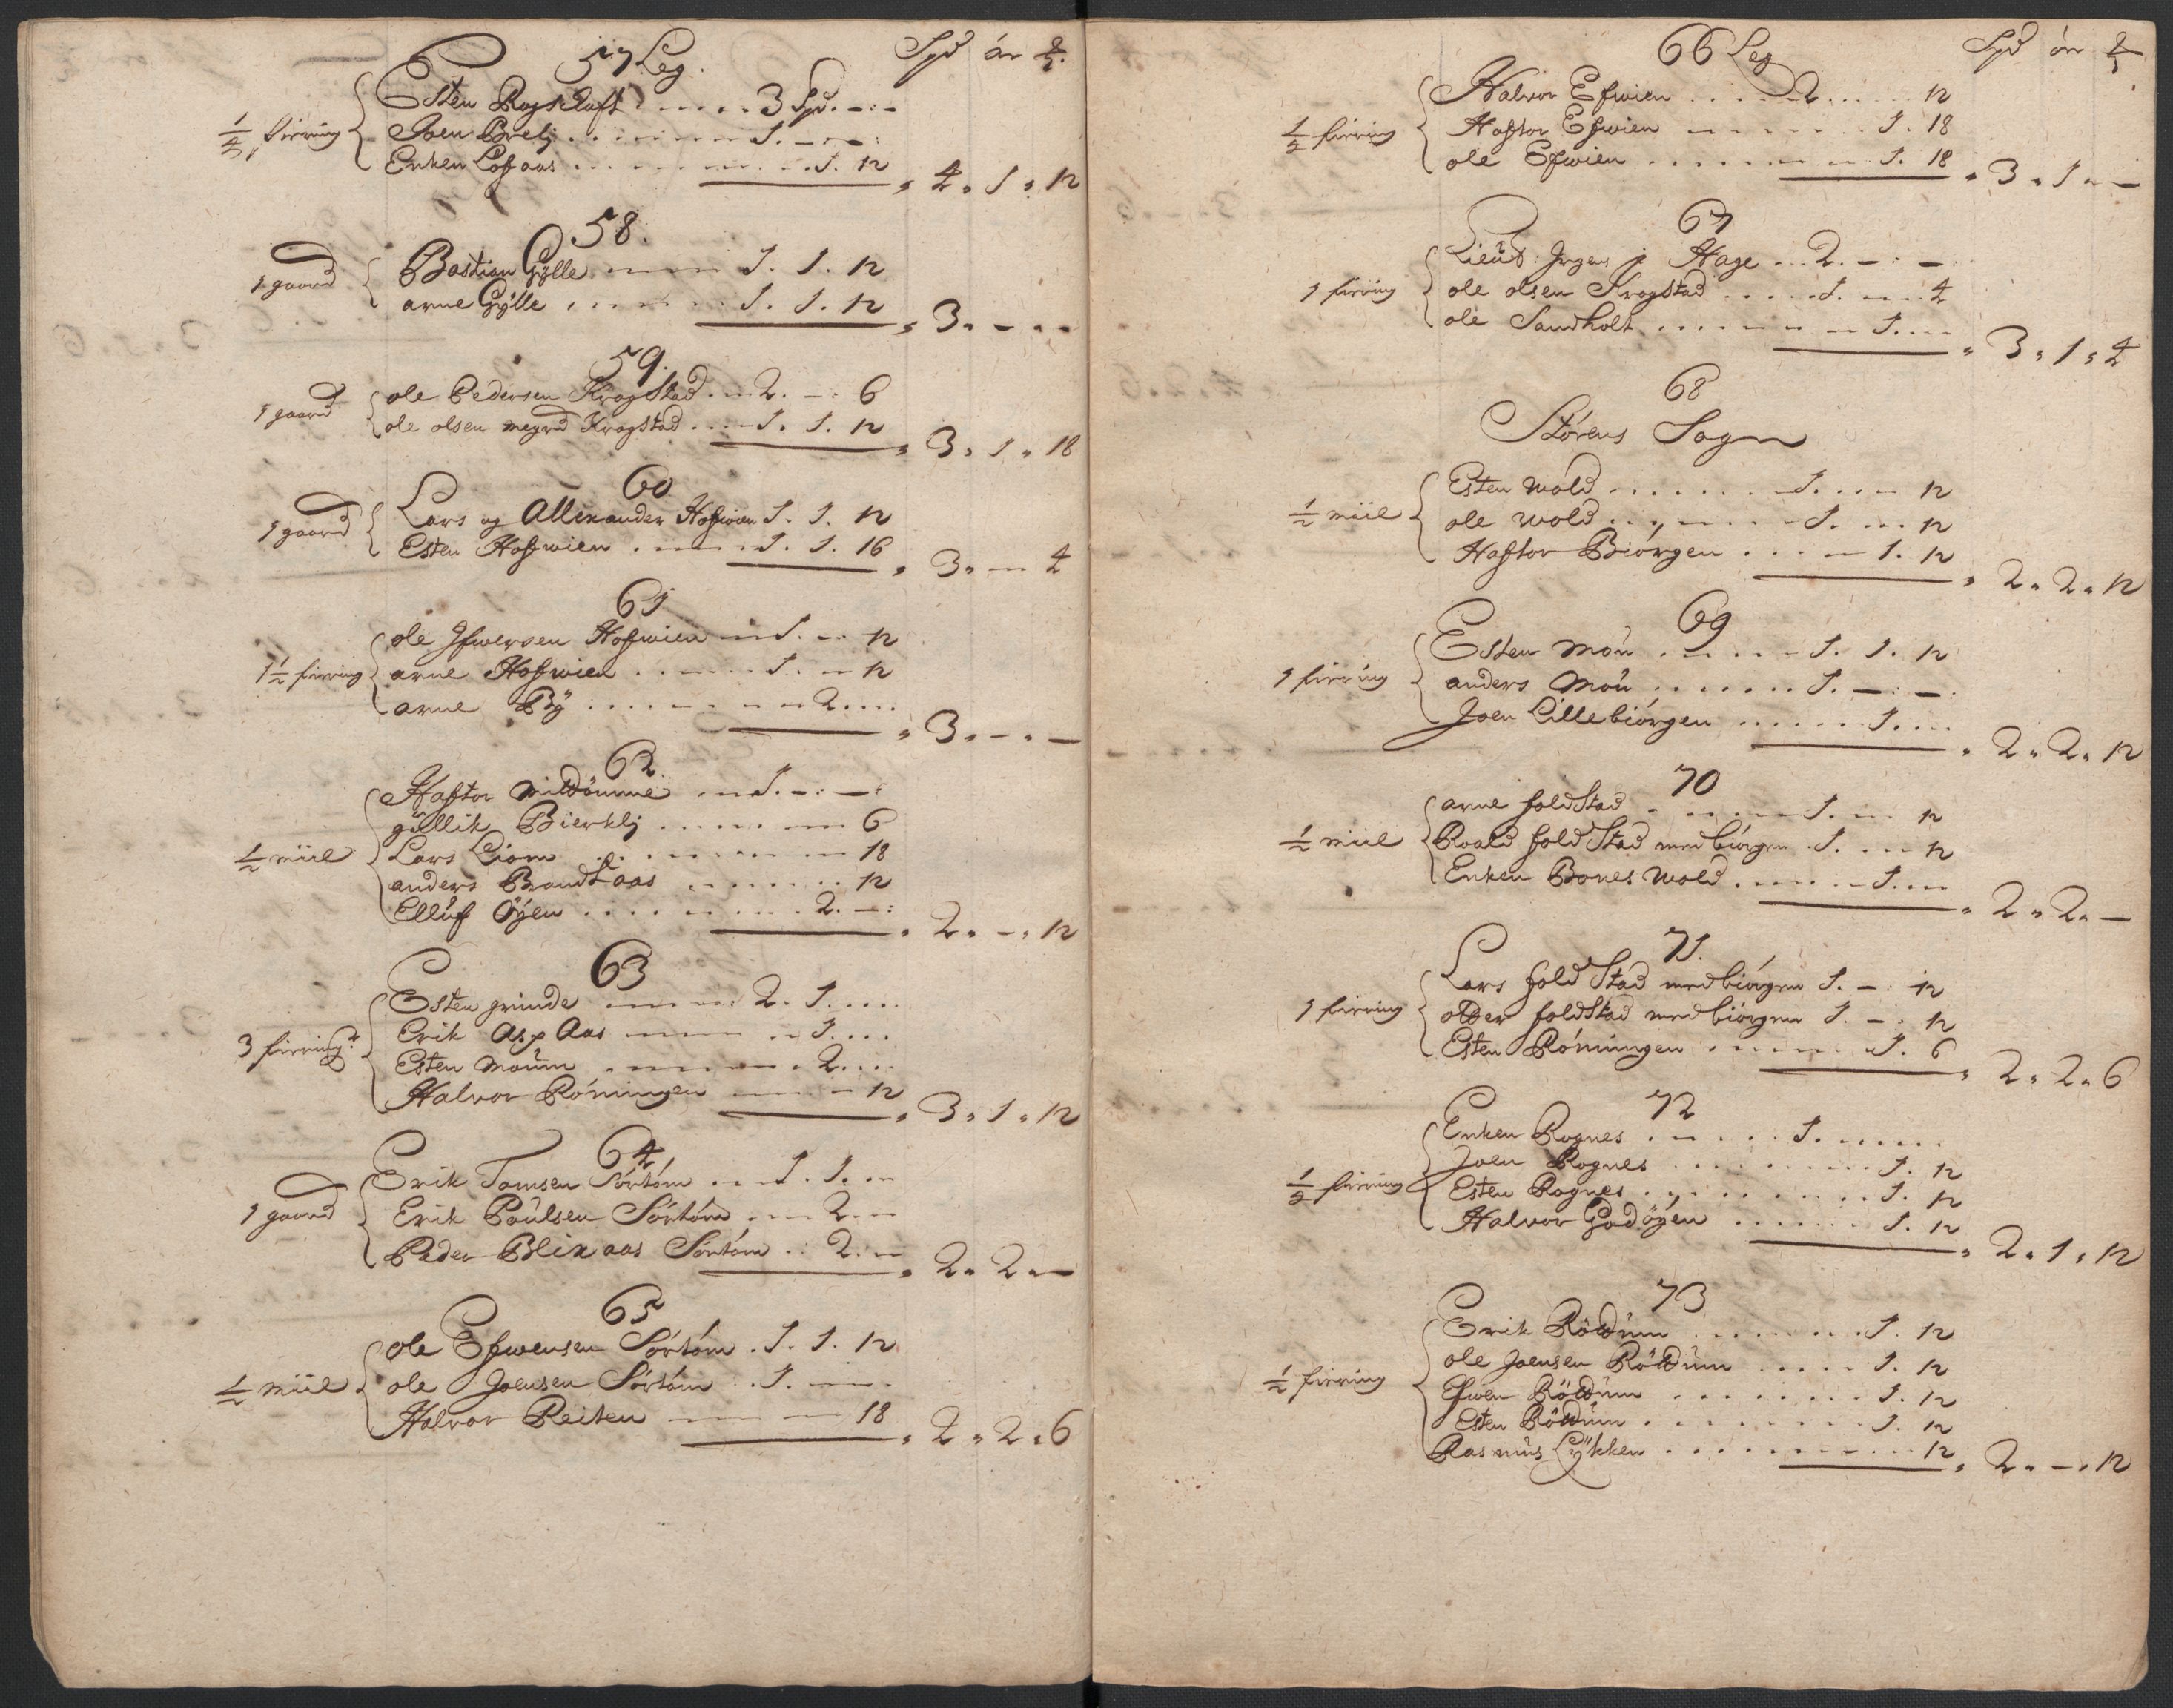 57 Leg. Spd ör
Esten Rogstloft . . . . . 3 Spd. - : -
¼ firring Joen Brelj . . . . . 1. - : - :
Enken Losaas . . . . . 1. 12 " 4 " 1 " 12
58.
1 gaard Bastian Gylle . . . . 1. 1. 12
arne Gylle . . . . 1. 1. 12 " 3 " - " -
59.
1 gaard ole Pedersen Krogstad . . 2. - : 6
ole olsen Krogstad . . . 1. 1. 12 " 3 " 1 " 18
60
1 gaard Lars og Allexander Hofswien 1. 1. 12
Esten Hofswien . . . 1. 1. 16 " 3 " - 4
61
ole Ifwersen Hofswien - 1. - 12
1½ firring arne Hofswien . . . . 1. - 12
arne By . . . . . 2. . . . " 3 " - " -
62.
Hafstor wildöume . . 1. - : - :
gullik Bierklj . . . . . 6
½ miil Lars Liom . . . . . 18
anders Brandtaas . . . . . 12
Elluf Öyen . . . . . 2. - : " 2 " - " 12
63
Esten grinde . . . . 2. 1. . . .
3 firring Erik Aspaas . . . . 1. . . .
Esten moum . . . . 2. . . .
Halvor Röningen . . . . 12 " 3 " 1 " 12
64
Erik Tomsen Sörtöm . . 1. 1. . .
1 gaard Erik Poulsen Sörtöm . . . 2. . .
Peder Blixaas Sörtöm . . 2. . . " 2 " 2 " -
65
ole Efwensen Sörtöm . 1. 1. 12
½ miil ole Joensen Sörtöm . . 1. . . .
Halvor Reiten . . . 18 " 2 " 2 " 6
66 Leg Spd ör
Halvor Efwien . . . . 2 . . . . 12
½ firring Hafstor Efwien . . . . 1. 18
ole Efwien . . . . . 1. 18 " 3 " 1 " -
67
Lieut: Jrgen Hage . . 2. - : - :
1 firring ole olsen Krogstad . . . . 1. . . . 4
ole Sandholt . . . . . 1. . . . " 3 " 1 " 4
68
Störens Sogn
Esten wold . . . . . . 1. . . . 12
½ miil ole wold . . . . . 1. . . . 12
Hafstor Biörgen . . . . 1. 12 " 2 " 2 " 12
69
Esten mou . . . . . 1. 1. 12
1 firring anders mou . . . . . . 1. - : - :
Joen Lillebiörgen . . . . . 1. . . . " 2 " 2 " 12
70
arne foldstad . . . . . 1. . . 12
½ miil Roald foldstad med biörgen 1. . . 12
Enken Bones wold . . . . . 1. . . . " 2 " 2 " -
71.
Lars foldstad med biörgen 1. - : 12
1 firring otter foldstad med biörgen 1. - : 12
Esten Röningen . . . . . 1. 6 " 2 " 2 " 6
72
Enken Rognes . . . . . 1. . . . . .
Joen Rognes . . . . . . 1. 12
½ firring Esten Rognes . . . . . . 1. 12
Halvor Godöyen . . . . . . 1. 12 " 2 " 1 " 12
73
Erik Rödum . . . . . . 1. 12
ole Joensen Rödum . . . . . 1. 12
½ firring Efwen Rödum . . . . . . 1. 12
Esten Rödum . . . . . . 1. 12
Rasmus Lykken . . . . . . 12 " 2 " - " 12